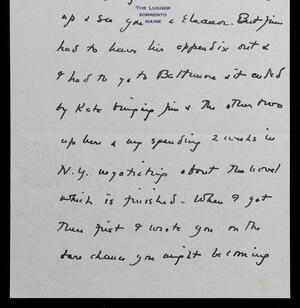 up & see you & Eleanor. But Jim
THE LUGGER
SORRENTO
MAINE
had to have his appendix out &
I had to go to Baltimore & it ended
by Kate bringing Jim & the other two
up here & my spending 2 weeks in
N.Y. negotiating about the novel
which is finished. When I got
there first I wrote you on the
bare chance you might be coming